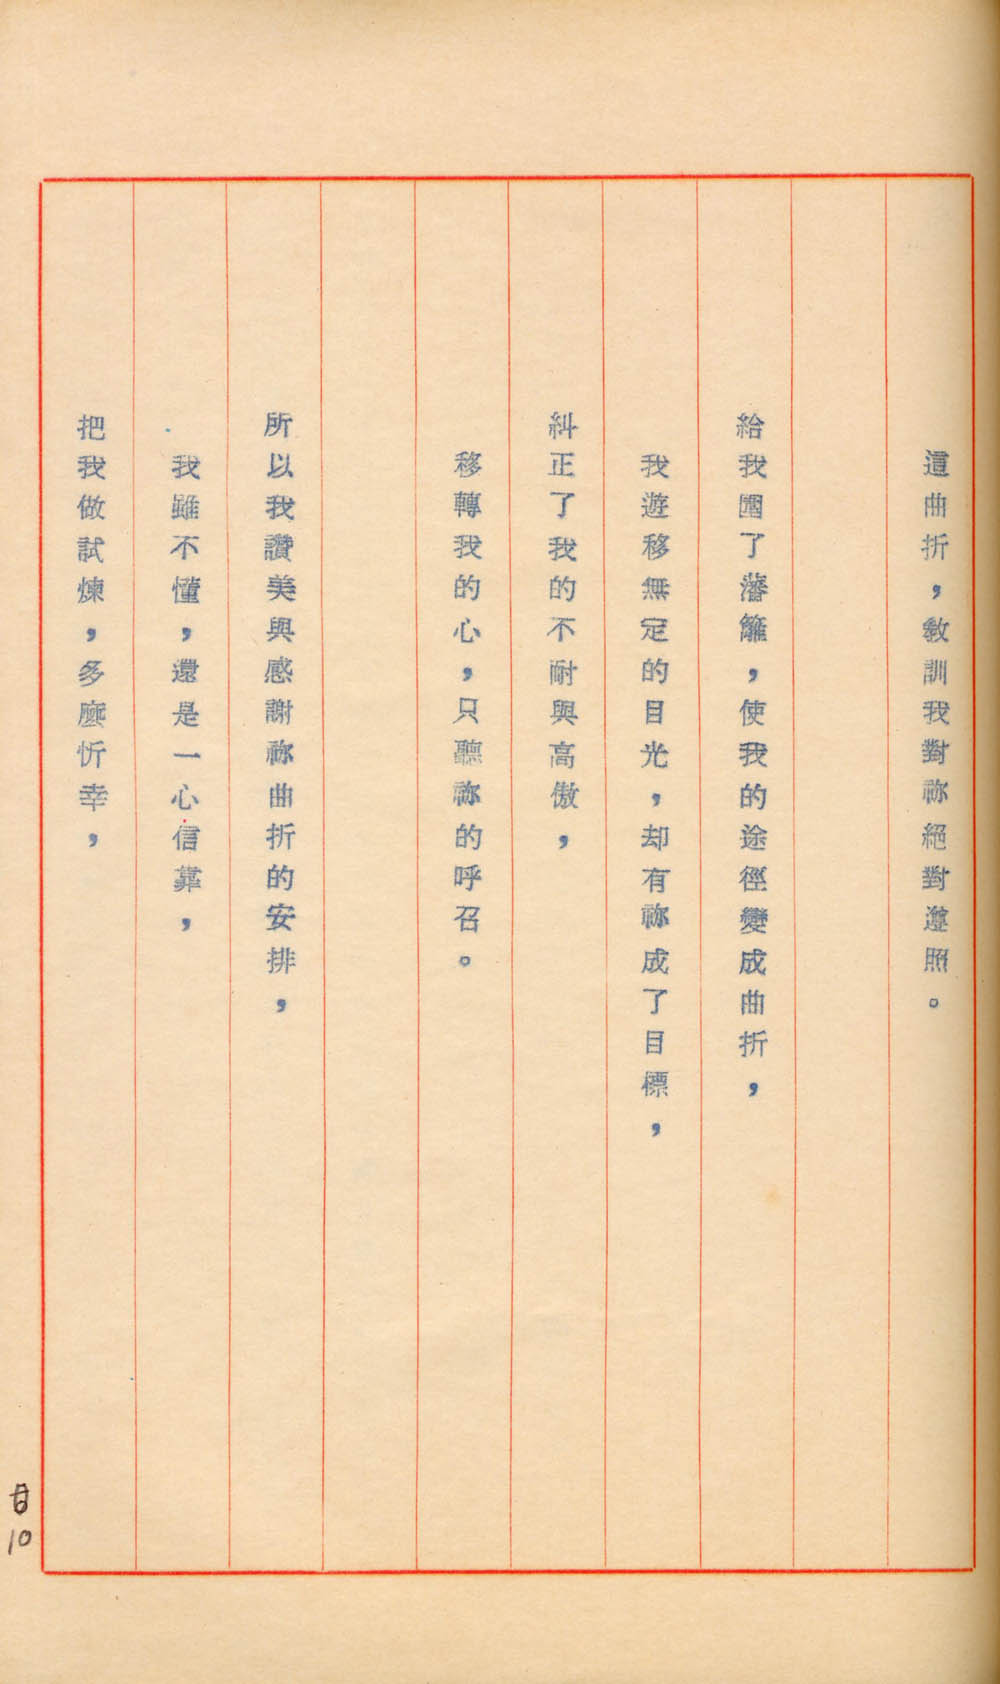 這曲折，教訓我對祢絕對遵照。
給我圍了藩籬，使我的途徑變成曲折，
我遊移無定的目光，却有祢成了目標，
糾正了我的不耐與高傲，
移轉我的心，只聽祢的呼召。
所以我讚美與感謝祢曲折的安排，
我雖不懂，還是一心信靠，
把我做試煉，多麼忻幸，
甘
10